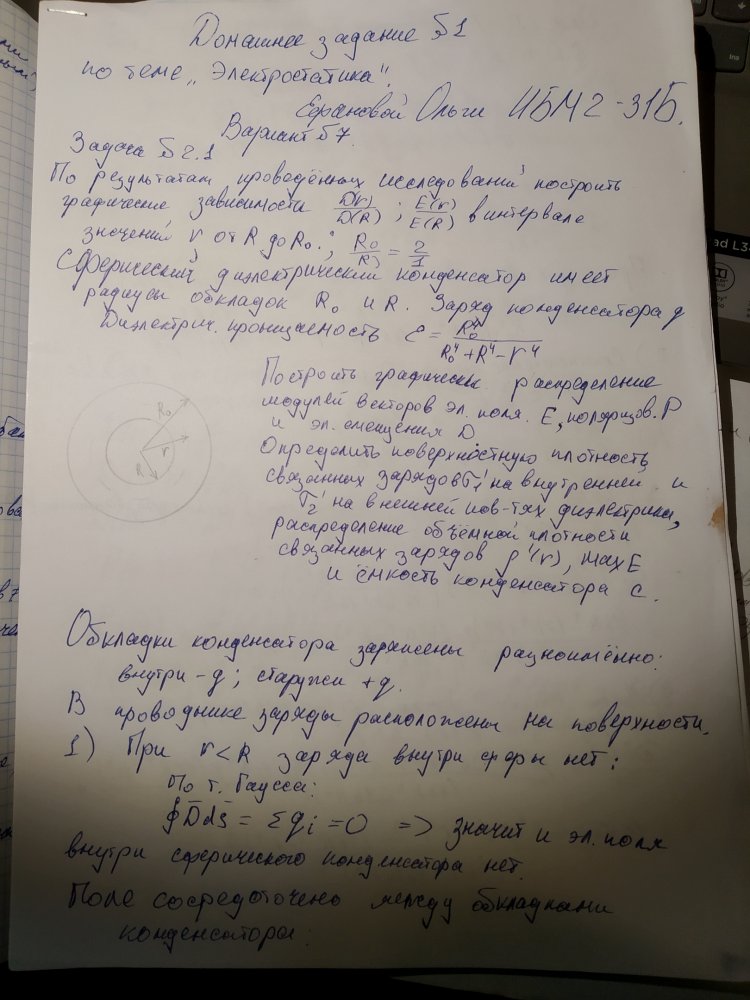 Домашнее задание №1
по теме „Электростатика".
Ефановой Ольги ИБМ2-31Б.
Вариант №7.
Задача №2.1
По результатам проведённых исследований построить
графические зависимости D(r)/D(R) ; E(r)/E(R) в интервале
значений r от R до R₀. ; R₀/R = 2/1
Сферический диэлектрический конденсатор имеет
радиусы обкладок R₀ и R. Заряд конденсатора q
Диэлектрич. проницаемость ε = R₀⁴/(R₀⁴+R⁴-r⁴)
Построить графически распределение
модулей векторов эл. поля. E, поляризов. P
и эл. смещения D.
Определить поверхностную плотность
связанных зарядов σ₁' на внутренней и
σ₂' на внешней пов-тях диэлектрика,
распределение объёмной плотности
связанных зарядов ρ'(r), max E
и ёмкость конденсатора C.
R₀
r
R
Обкладки конденсатора заряжены разноимённо:
внутри -q; снаружи +q.
В проводнике заряды расположены на поверхности.
1) При r<R заряда внутри сферы нет:
По т. Гаусса:
∮D̄ds̄ = Σqᵢ = 0 => значит и эл. поля
внутри сферического конденсатора нет.
Поле сосредоточено между обкладками
конденсатора:
ins